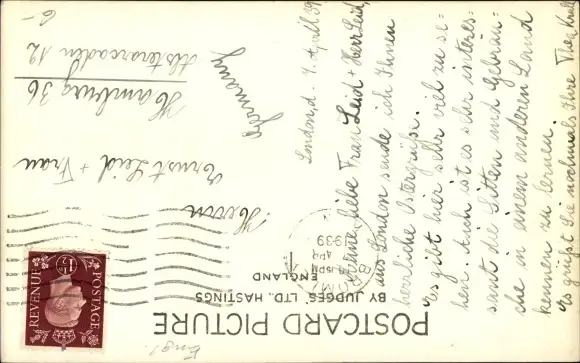 Engl.
POSTCARD PICTURE
BY JUDGES' LTD, HASTINGS
ENGLAND
POSTAGE
REVENUE
1½
8
APR
1939
Herrn
Ernst Leid + Frau
Hamburg 36
Alsterarcaden 12
Germany
London, d. 7. April 39
Meine liebe Frau Leid + Herr Leid,
aus London sende ich Ihnen
herzliche Ostergrüße.
Es gibt hier sehr viel zu se-
hen. Auch ist es sehr interes-
sant die Sitten und Gebräu-
che in einem anderen Land
kennen zu lernen.
Es grüßt Sie nochmals Ihre Thea
6-